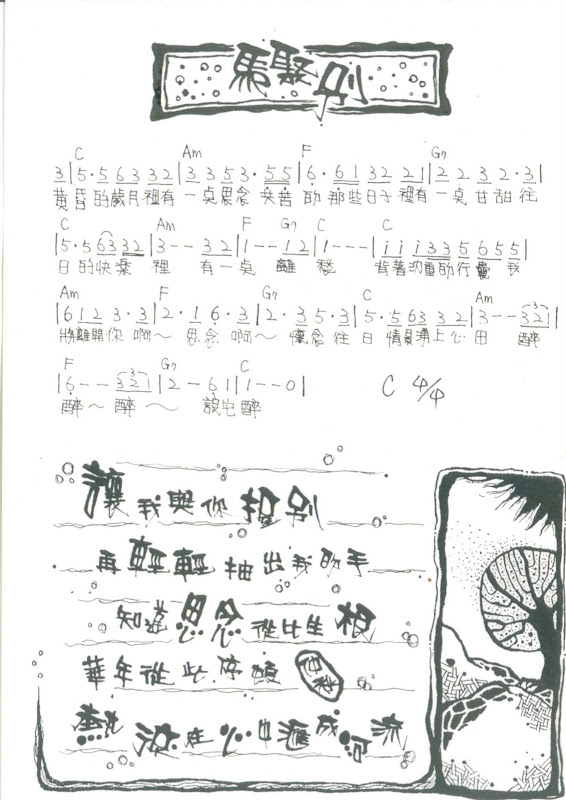 馬聚別
C Am F G7
3|5·5 6 3 3 2|3 3 5 3·5 5|6·6 1 3 2 2 1|2 2 3 2·3|
黃昏的歲月裡有一桌思念 共昔的那些日子裡有一桌甘甜往
C Am F G7 C C
|5·5 6 3 3 2|3 - - 3 2|1 - - 1 2|1 - - -|i i i 3 3 5 6 5 5|
日的快樂裡 有一桌離愁 背著沈重的行囊 我
Am F G7 C Am
|6 1 2 3·3|2·1 6·3|2·3 5·3|5·5 6 3 3 2|3 - - 3 2 1|
將離開你啊～思念啊～懷念往日情景湧上心田 醉
F G7 C
|6 - - 3 2 1|2 - 6 1|1 - - 0| C 4/4
醉～醉～ 醉
讓我與你握別
再輕輕抽出我的手
知道思念從此生根
華年從此停頓
熱淚在心中滙成河流